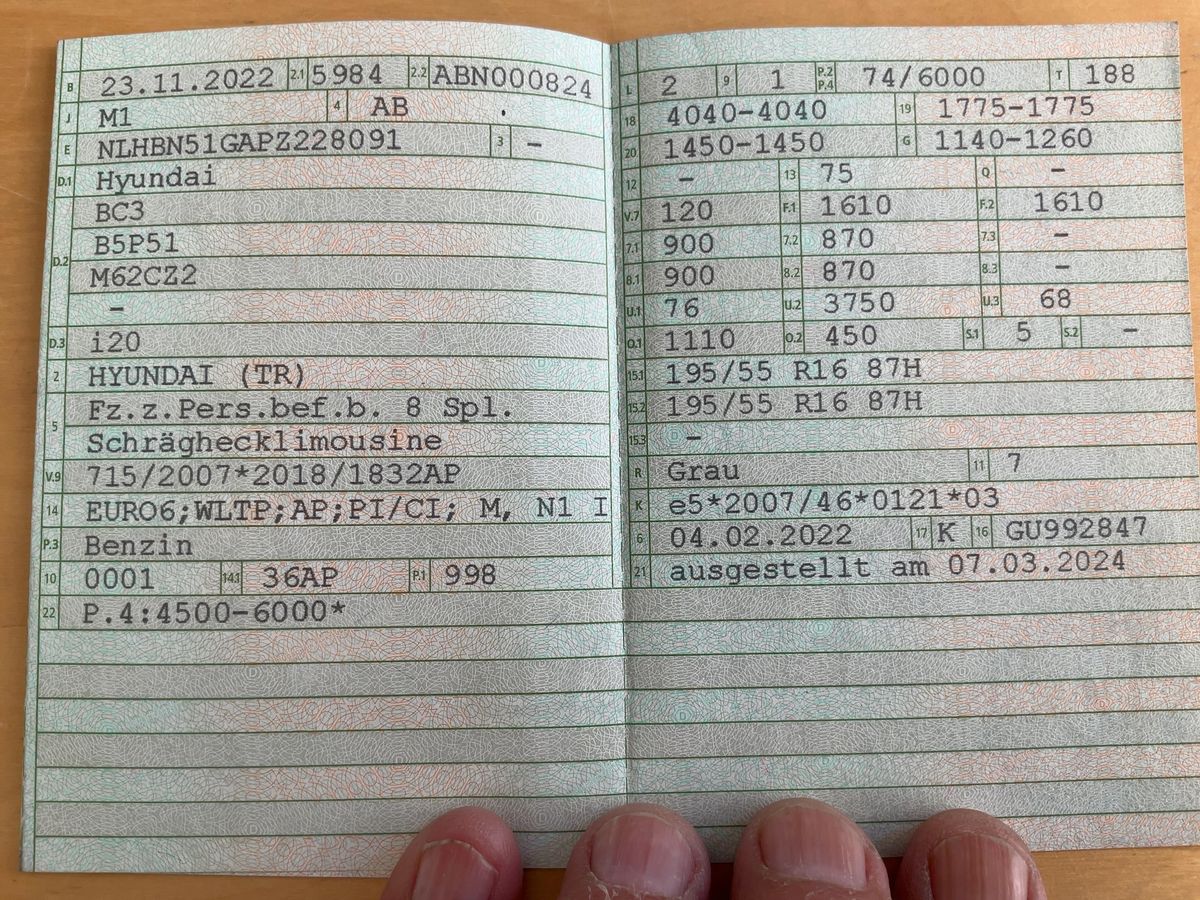 B 23.11.2022 2.1 5984 2.2 ABN000824
J M1 4 AB .
E NLHBN51GAPZ228091 3 –
D.1 Hyundai
BC3
D.2 B5P51
M62CZ2
–
D.3 i20
2 HYUNDAI (TR)
5 Fz.z.Pers.bef.b. 8 Spl.
Schräghecklimousine
V.9 715/2007*2018/1832AP
14 EURO6;WLTP;AP;PI/CI; M, N1 I
P.3 Benzin
10 0001 14.1 36AP P.1 998
22 P.4:4500-6000*
L 2 9 1 P.2 P.4 74/6000 T 188
18 4040-4040 19 1775-1775
20 1450-1450 G 1140-1260
12 – 13 75 Q –
V.7 120 F.1 1610 F.2 1610
7.1 900 7.2 870 7.3 –
8.1 900 8.2 870 8.3 –
U.1 76 U.2 3750 U.3 68
O.1 1110 O.2 450 S.1 5 S.2 –
15.1 195/55 R16 87H
15.2 195/55 R16 87H
15.3 –
R Grau 11 7
K e5*2007/46*0121*03
6 04.02.2022 17 K 16 GU992847
21 ausgestellt am 07.03.2024